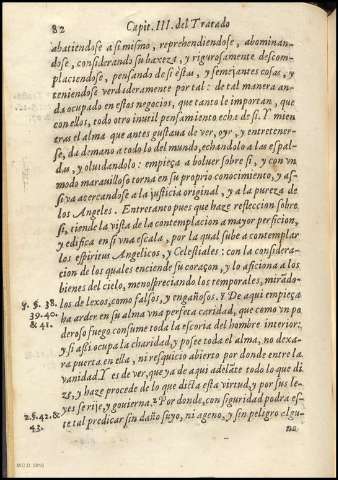 82 Capit. III. del Tratado
abatiendose a si mismo, reprehendiendose, abominan-
dose, considerando su baxeza, y rigurosamente descom-
placiendose, pensando de si éstas, y semejantes cosas, y
teniendose verdaderamente por tal: de tal manera an-
da ocupado en estos negocios, que tanto le importan, que
con ellos, todo otro inutil pensamiento echa de si. Y mien
tras el alma que antes gustaua de ver, oyr, y entretener-
se, da de mano a todo lo del mundo, echandolo a las espal-
das, y oluidandolo: empieça a boluer sobre si, y con vn
modo marauilloso torna en su proprio conocimiento, y as-
si va acercandose a la justicia original, y a la pureza de
los Angeles. Entretanto pues que haze refleccion sobre
si, tiende la vista de la contemplacion a mayor perficion,
y edifica en si vna escala, por la qual sube a contemplar
los espiritus Angelicos, y Celestiales: con la considera-
cion de los quales enciende su coraçon, y lo aficiona a los
bienes del cielo, menospreciando los temporales, mirādo-
§. §. 38. los de lexos, como falsos, y engañosos. De aqui empieça
39. 40. ha arder en su alma vna perfeta caridad, que como vn po
& 41. deroso fuego consume toda la escoria del hombre interior:
y si assi ocupa la charidad, y posee toda el alma, no dexa-
ra puerta en ella, ni resquicio abierto por donde entre la
vanidad. Y es de ver, que ya de aqui adelāte todo lo que di
ze, y haze procede de lo que dicta esta virtud, y por sus le-
2. §. 42. & yes se rije, y gouierna. Por donde, con seguridad podra es-
43. te tal predicar sin daño suyo, ni ageno, y sin peligro algu-